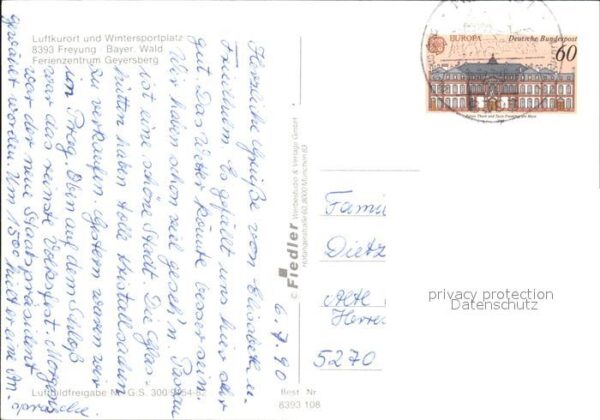 Luftkurort und Wintersportplatz
8393 Freyung · Bayer. Wald
Ferienzentrum Geyersberg
EUROPA
Deutsche Bundespost
60
Herzliche Grüße von Elisabeth u.
Friedhelm. Es gefällt uns hier sehr
gut. Das Wetter könnte besser sein.
Wir haben schon viel geseh'n. Passau
ist eine schöne Stadt. Die Glas-
hütten haben tolle Kristallsachen
zu verkaufen. Gestern waren wir
in Prag. Oben auf dem Schloß
war das reinste Volksfest. Morgens
war der neue Staatspräsident
gewählt worden. Um 1500 hielt er eine An-
sprache.
6.7.90
© Fiedler
Werbestudio & Verlags GmbH
8000 München 83
Best Nr
8393 108
Luftbildfreigabe Nr G.S. 300
Famil
Dietz
Alte
Herre
5270
privacy protection
Datenschutz